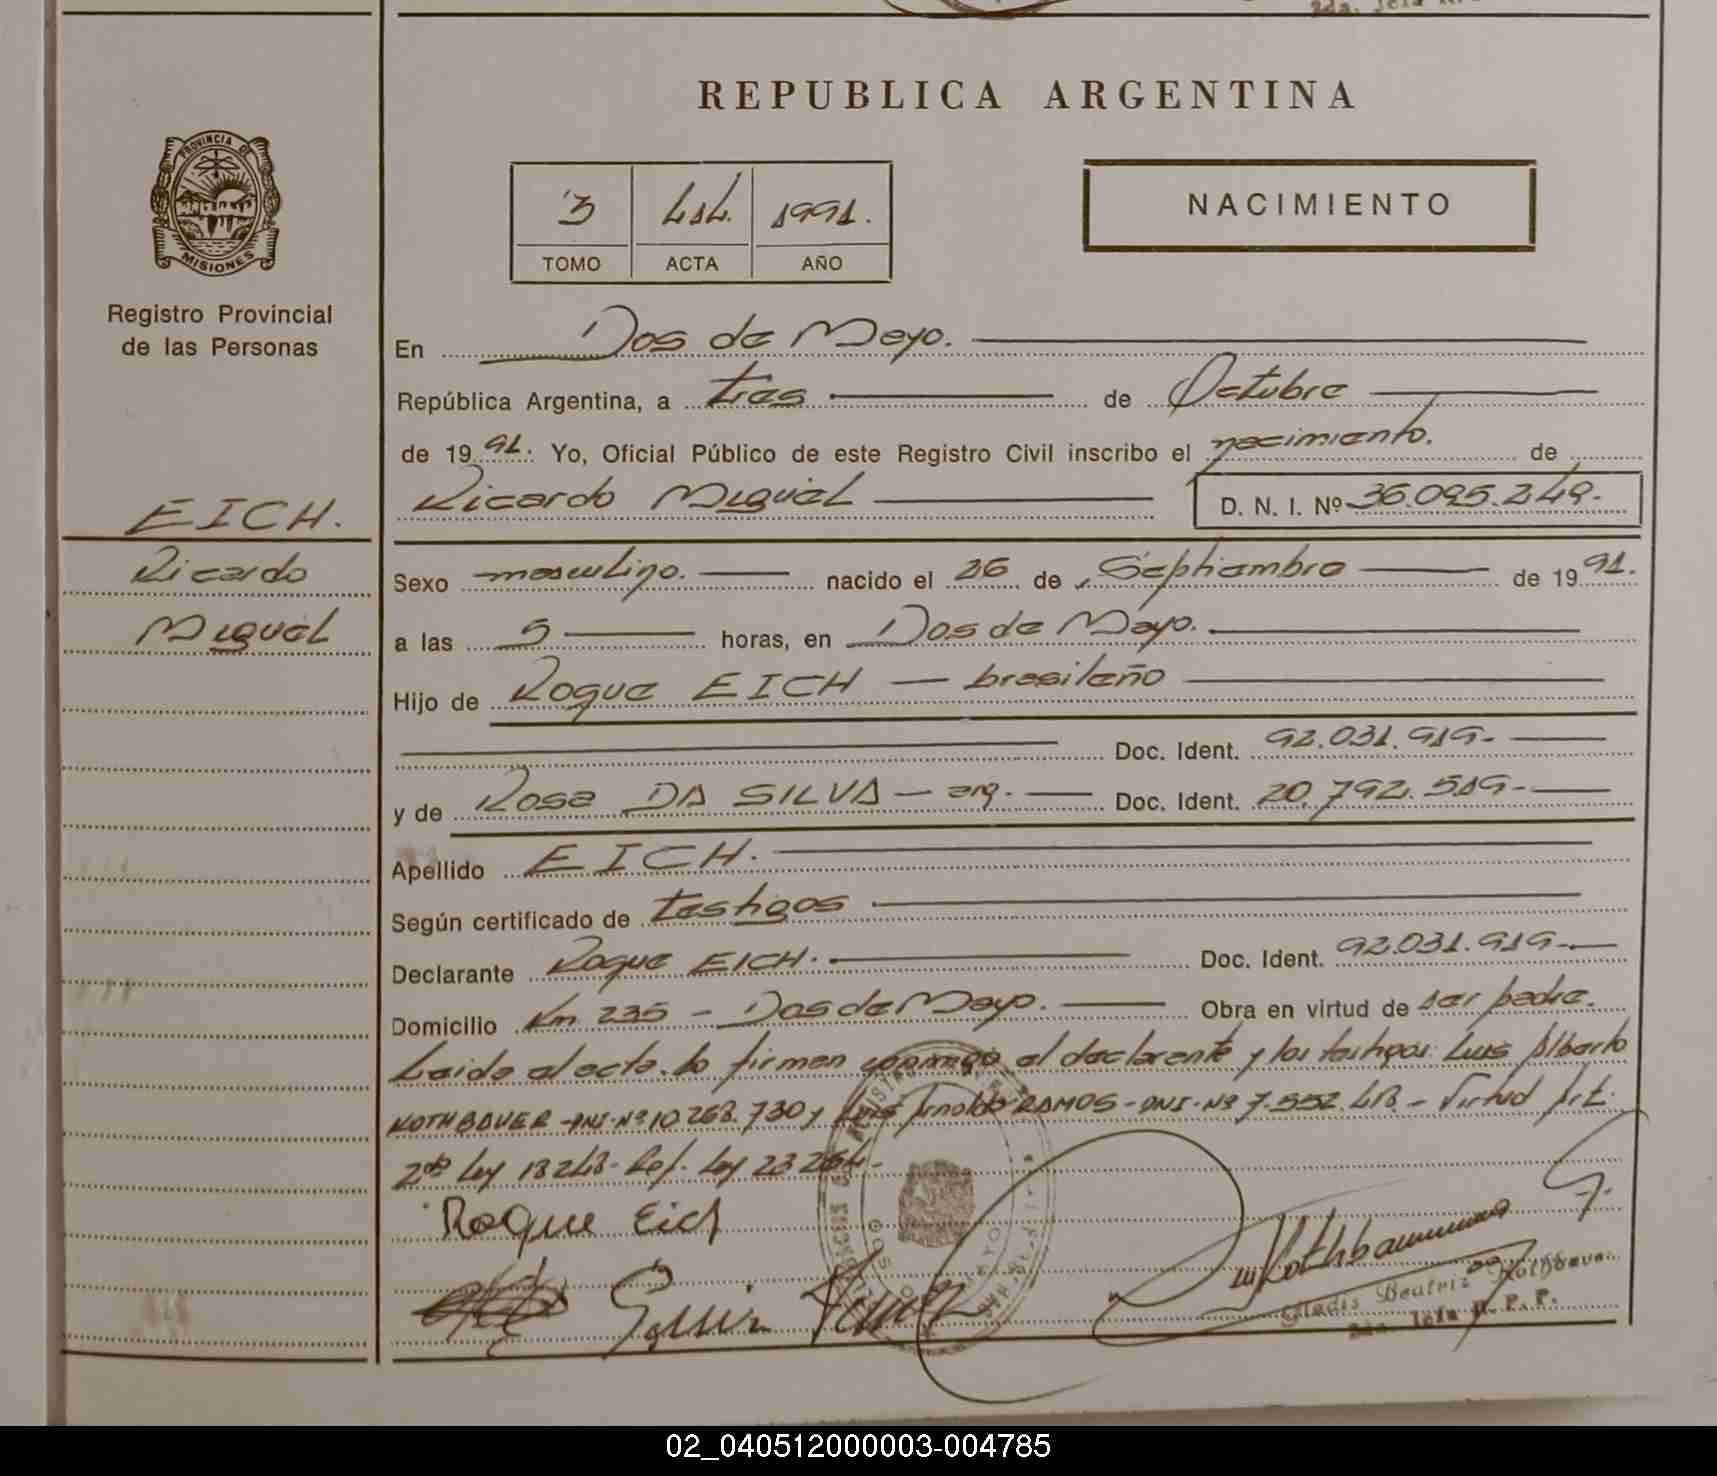 REPUBLICA ARGENTINA
PROVINCIA DE
MISIONES
Registro Provincial
de las Personas
3 414. 1991.
TOMO ACTA AÑO
NACIMIENTO
En Dos de Mayo.
República Argentina, a tres de Octubre
de 1991. Yo, Oficial Público de este Registro Civil inscribo el nacimiento. de
Ricardo Miguel D. N. I. Nº 36.095.249.
EICH.
Ricardo
Miguel
Sexo masculino. nacido el 26 de Septiembre de 1991.
a las 5 horas, en Dos de Mayo.
Hijo de Roque EICH — brasileño
Doc. Ident. 92.031.919.
y de Rosa DA SILVA — arg. — Doc. Ident. 20.792.519-
Apellido EICH.
Según certificado de testigos
Declarante Roque EICH. Doc. Ident. 92.031.919-
Domicilio Km 235 - Dos de Mayo. Obra en virtud de ser padre.
Leida el acta. lo firman conmigo el declarante y los testigos: Luis Alberto
KOTHBAUER - DNI. Nº 10.268.730 y Luis Arnoldo RAMOS - DNI. Nº 7.552.413. - Virtud Art.
2do Ley 18248. Ref. Ley 23264.-
Roque Eich
Kothbauer
Gladis Beatriz Kothbauer
2da. Jefa R. P. P.
02_040512000003-004785